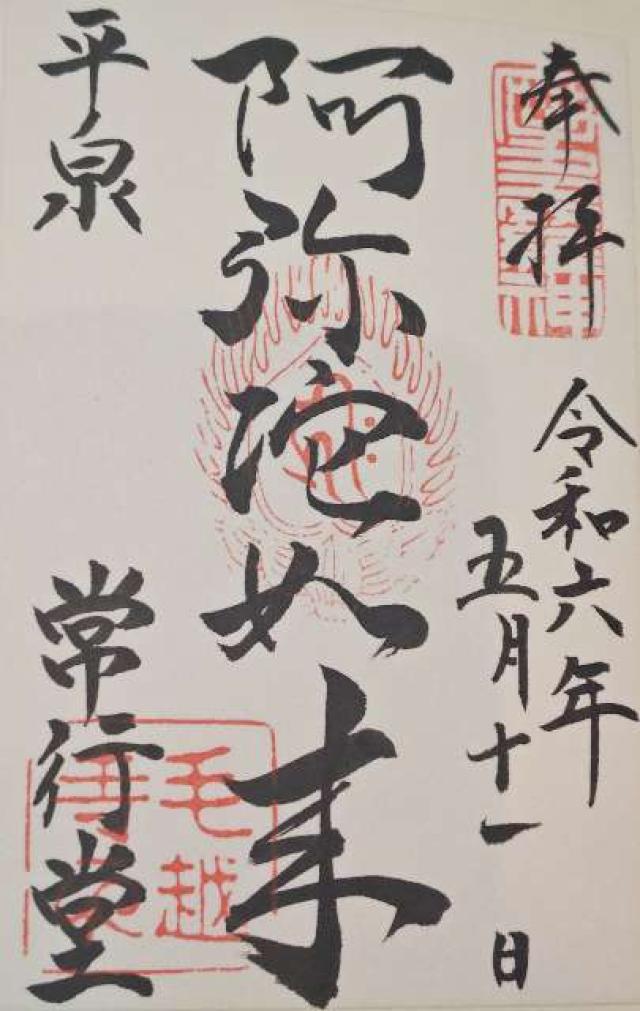 奉拝
令和六年
五月十一日
阿弥陀如来
平泉
常行堂
毛越